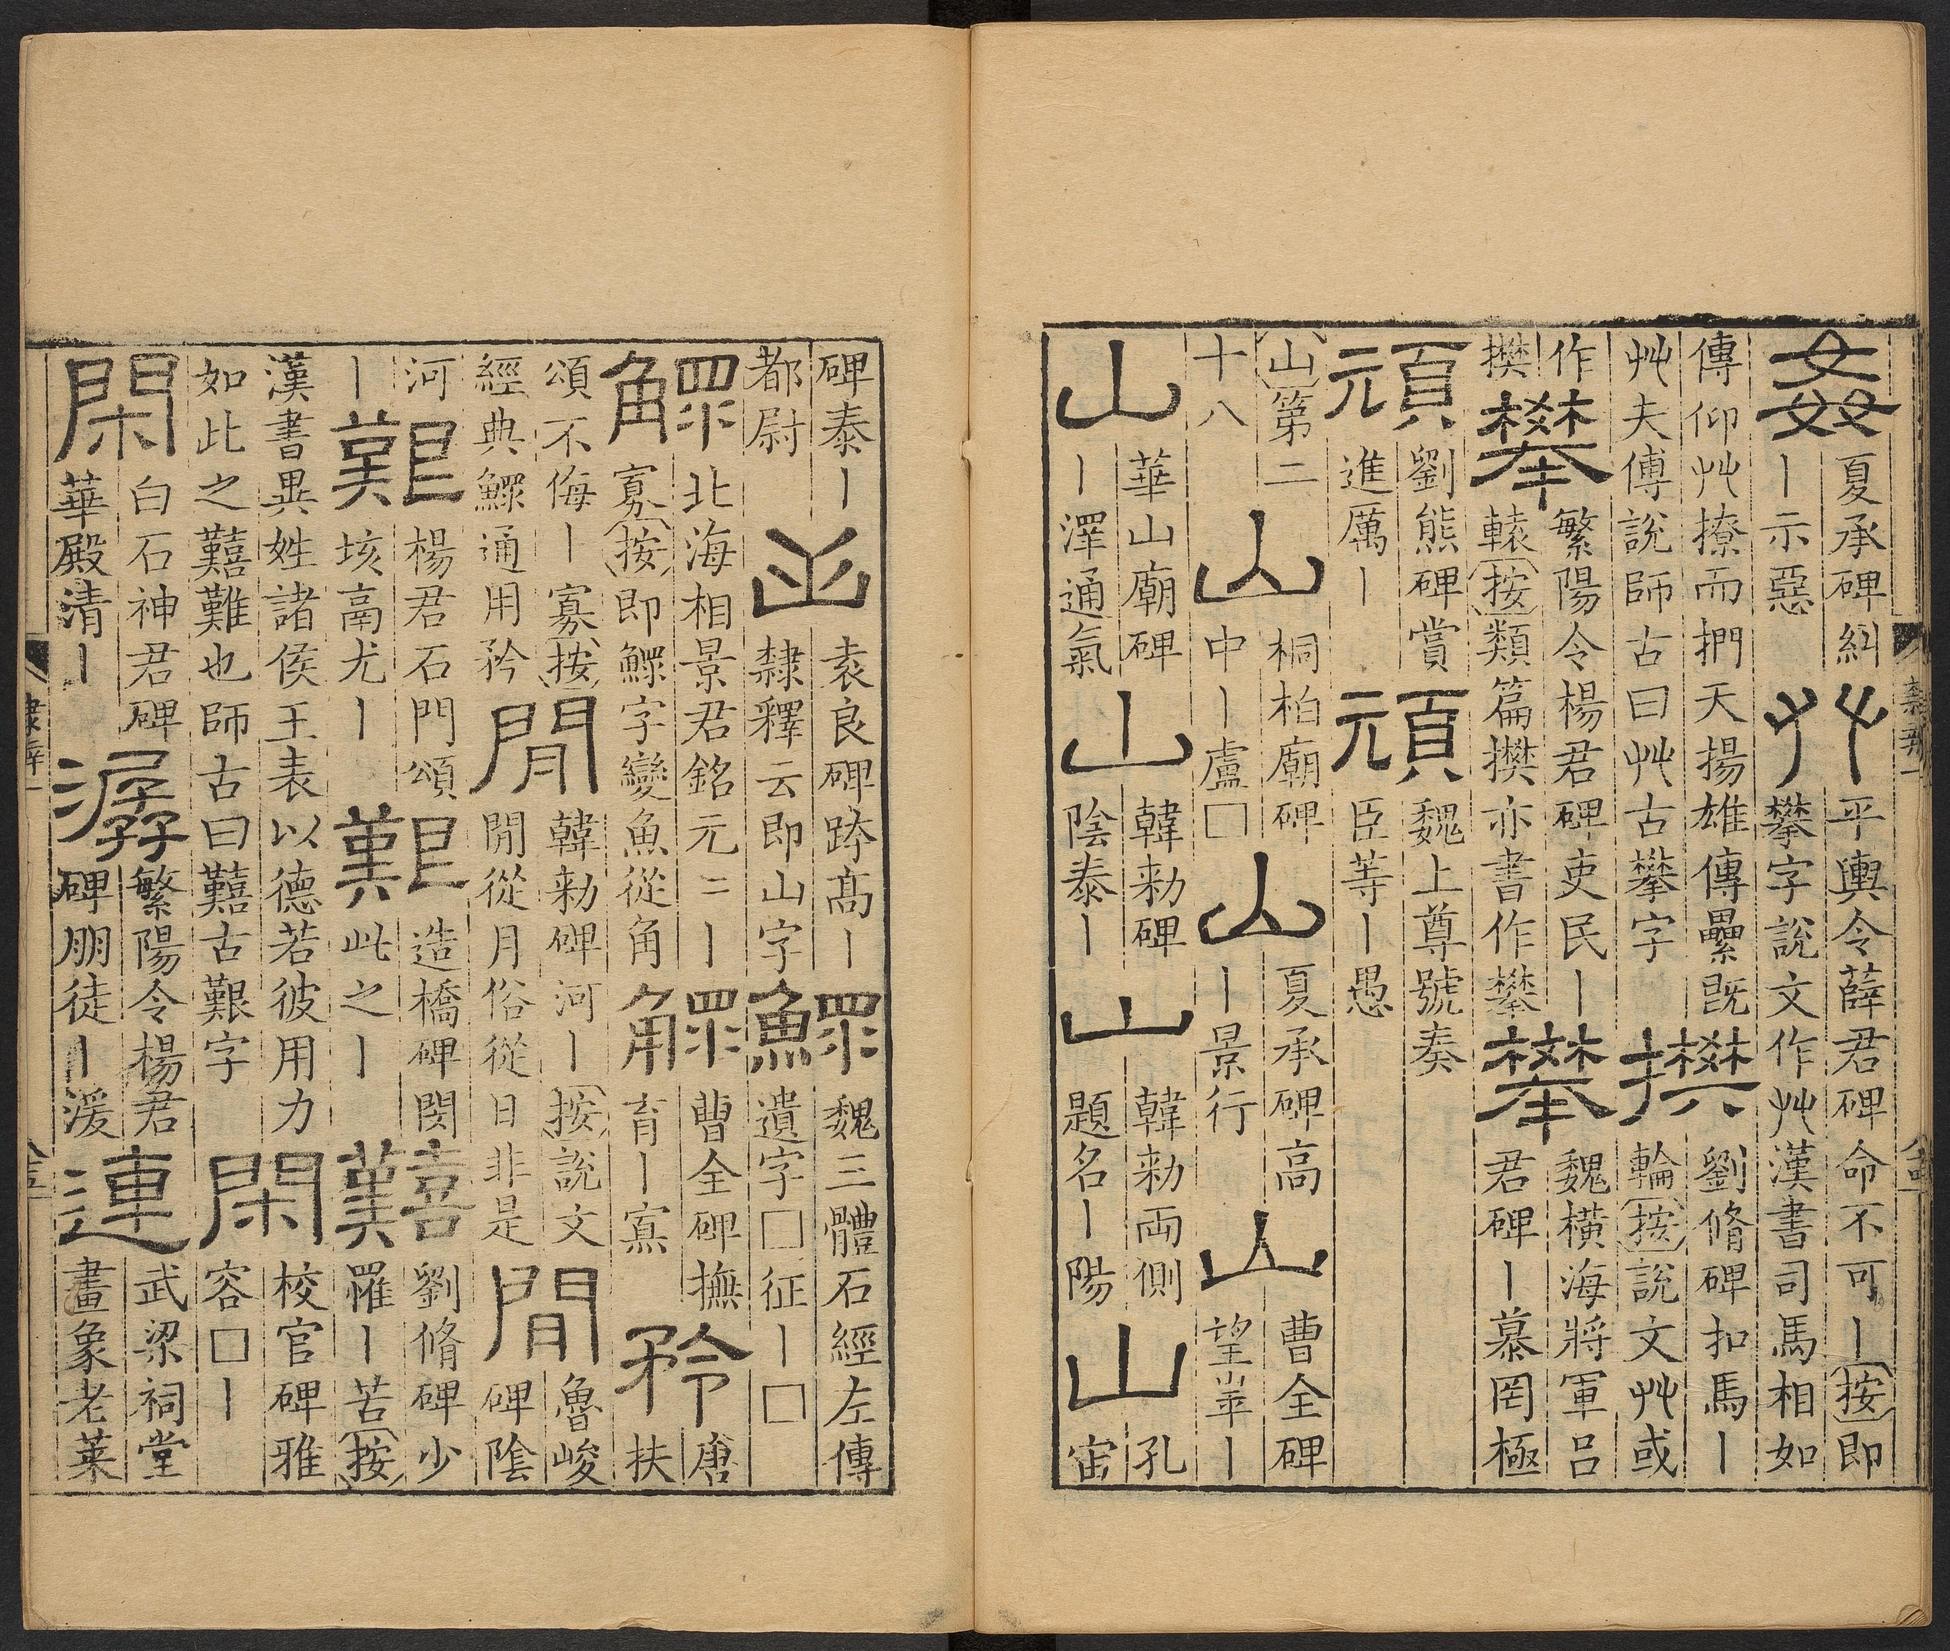 姦
夏承碑糾
丨示惡
𠬜
平輿令薛君碑命不可丨按即
攀字說文作𠬜漢書司馬相如
傳仰𠬜橑而捫天揚雄傳纍既
𠬜夫傅說師古曰𠬜古攀字
㩯
劉脩碑扣馬丨
輪按說文𠬜或
作
㩯
攀
繁陽令楊君碑吏民丨
轅按類篇㩯亦書作攀
攀
魏橫海將軍呂
君碑丨慕罔極
頑
劉熊碑賞
進厲丨
頑
魏上尊號奏
臣等丨愚
山第二
十八
山
桐柏廟碑
中丨盧□
山
夏承碑高
丨景行
山
曹全碑
望崋丨
山
華山廟碑
丨澤通氣
山
韓勑碑
陰泰丨
山
韓勑兩側
題名丨陽
山
孔
宙
碑泰丨
都尉
山
袁良碑跡高丨
隸釋云即山字
鰥
魏三體石經左傳
遺字□征丨□
鰥
北海相景君銘元二丨
寡按即鰥字變魚從角
鰥
曹全碑撫
育丨寡
矜
唐
扶
頌不侮丨寡按
經典鰥通用矜
閒
韓勑碑河丨按說文
閒從月俗從日非是
間
魯峻
碑陰
河
丨
艱
楊君石門頌
垓鬲尤丨
艱
造橋碑閔
此之丨
囏
劉脩碑少
罹丨苦按
漢書異姓諸侯王表以德若彼用力
如此之囏難也師古曰囏古艱字
閑
校官碑雅
容□丨
閑
白石神君碑
華殿清丨
潺
繁陽令楊君
碑朋徒丨湲
連
武梁祠堂
畫象老萊